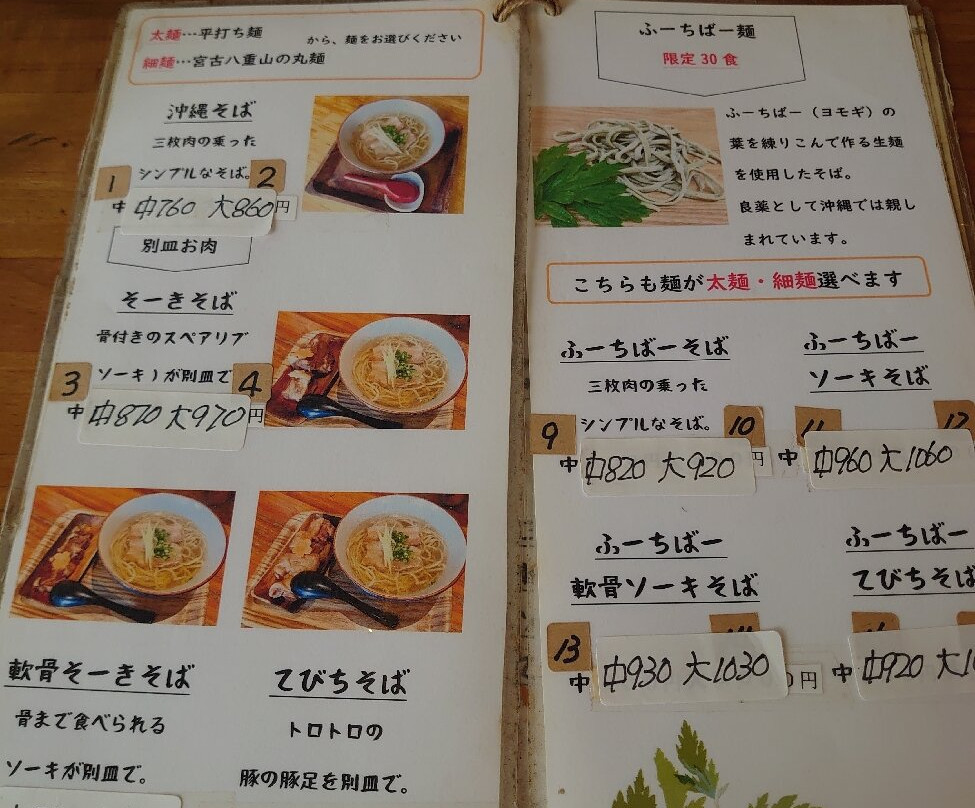 太麺…平打ち麺
から、麺をお選びください
細麺…宮古八重山の丸麺
沖縄そば
三枚肉の乗った
シンプルなそば。
1
2
中 中760 大860円
別皿お肉
そーきそば
骨付きのスペアリブ
ソーキ)が別皿で
3
4
中 中870 大970円
軟骨そーきそば
骨まで食べられる
ソーキが別皿で。
てびちそば
トロトロの
豚の豚足を別皿で。
ふーちばー麺
限定30食
ふーちばー(ヨモギ)の
葉を練りこんで作る生麺
を使用したそば。
良薬として沖縄では親し
まれています。
こちらも麺が太麺・細麺選べます
ふーちばーそば
三枚肉の乗った
シンプルなそば。
9
10
中 中820 大920 円
ふーちばー
ソーキそば
11
12
中 中960 大1060
ふーちばー
軟骨ソーキそば
13
中 中930 大1030 0円
ふーちばー
てびちそば
中 中920 大1